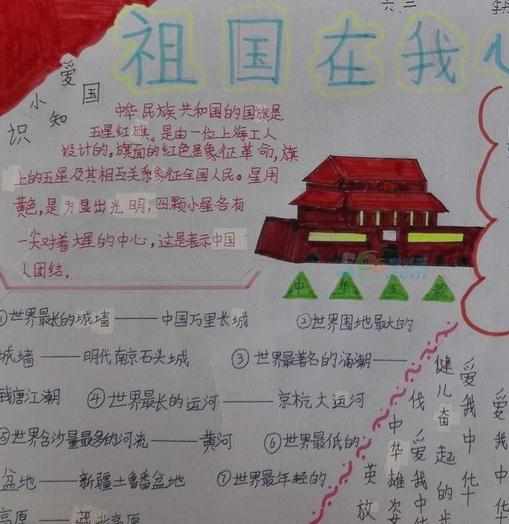 六.三
祖国在我
爱国
小知识
中华民族共和国的国旗是
五星红旗。是由一位上海工人
设计的，旗面的红色是象征革命，旗
上的五星及其相互关系象征全国人民。星用
黄色，是为显出光明，四颗小星各有
一尖对着大星的中心，这是表示中国
人团结。
中华
①世界最长的城墙——中国万里长城
②世界围地最大的
城墙——明代南京石头城
③世界最著名的涌潮——
钱唐江潮
④世界最长的运河——京杭大运河
⑤世界含沙量最多的河流——黄河
⑥世界最低的
盆地——新疆土鲁番盆地
⑦世界最年轻的
高原——
爱我中华
健儿奋起的步
伐爱我中华
中华雄姿
英放
爱我中